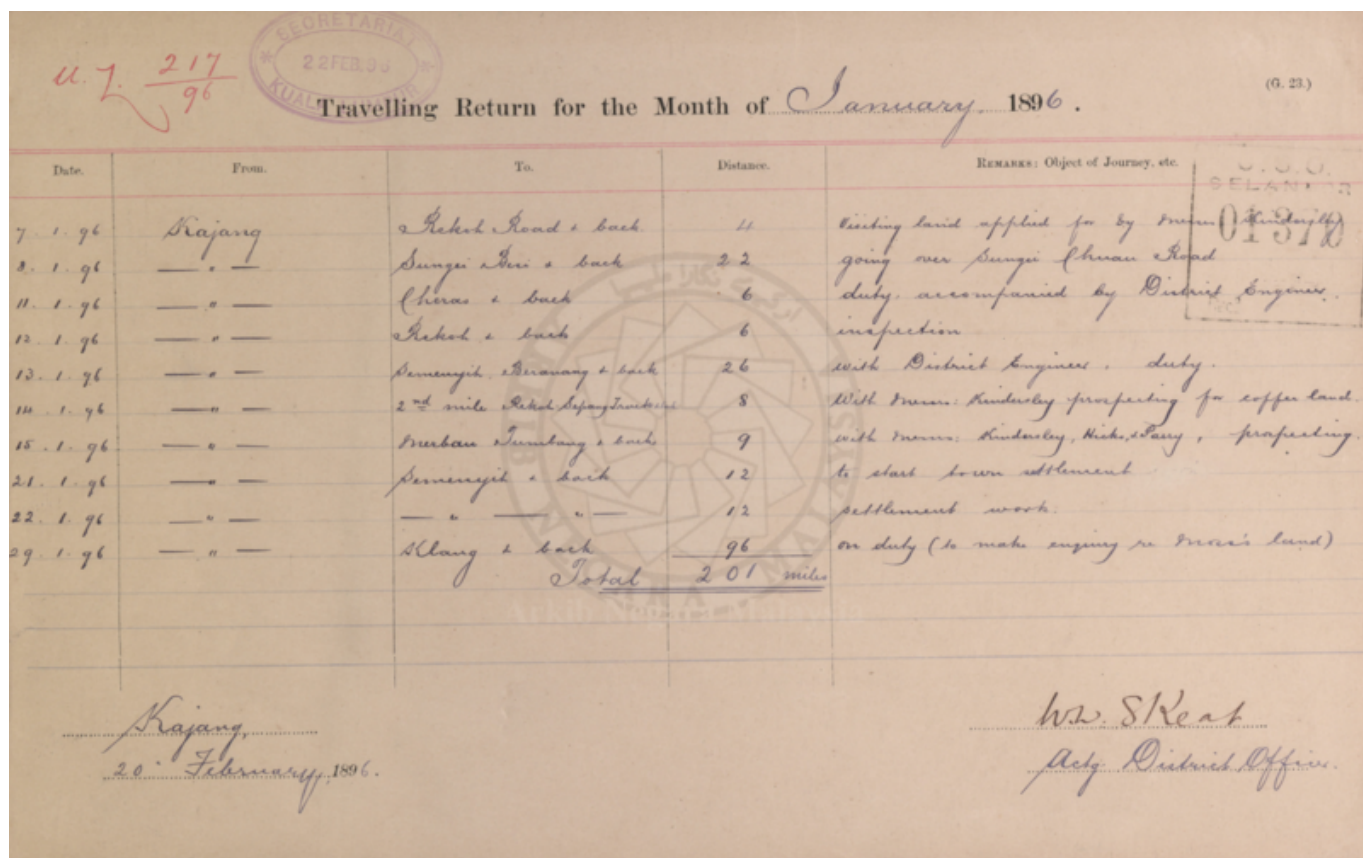 SECRETARIAT
U.L. 217/96
22 FEB. 96
KUALA LUMPUR
(G. 23.)
Travelling Return for the Month of January 1896.
Date. From. To. Distance. REMARKS: Object of Journey, etc.
SELANGOR
7. 1. 96 Kajang Rekoh Road & back 4 Visiting land applied for by Messrs Kindersley
8. 1. 96 — " — Sungei Besi & back 22 going over Sungei Chuau Road
11. 1. 96 — " — Cheras & back 6 duty, accompanied by District Engineer.
12. 1. 96 — " — Rekoh & back 6 inspection
13. 1. 96 — " — Semenyih, Beranang & back 26 with District Engineer, duty.
14. 1. 96 — " — 2nd mile Rekoh Sepang Trace & back 8 With Messrs: Kindersley prospecting for coffee land.
15. 1. 96 — " — Merbau Tumbang & back 9 with Messrs: Kindersley, Hicks, & Parry, prospecting.
21. 1. 96 — " — Semenyih & back 12 to start town settlement
22. 1. 96 — " — — " — — " — 12 settlement work.
29. 1. 96 — " — Klang & back 96 on duty (to make enquiry re land)
Total 201 miles
Arkib Negara Malaysia
Kajang, W.W. Skeat
20 February, 1896. Actg. District Officer.